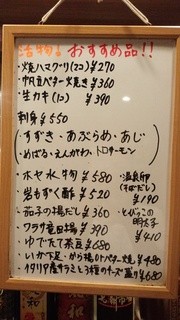 活物&おすすめ品!!
・焼ハマグリ(2コ) ¥270
・帆立バター焼き ¥360
・生カキ(1コ) ¥390
刺身 各 ¥550
・すずき・あぶらめ・あじ
・めばる・えんがわ・トロサーモン
・ホヤ水物 ¥580
・岩もずく酢 ¥520
・茄子の揚だし ¥360
・ワラサ竜田揚 ¥390
・ゆでたて茶豆 ¥680
・いか下足・から揚 or バター焼 ¥480
・イタリア産サラミと3種のチーズ盛り ¥680
・温泉卵(そばだし) ¥190
・とびっこの明太子 ¥410